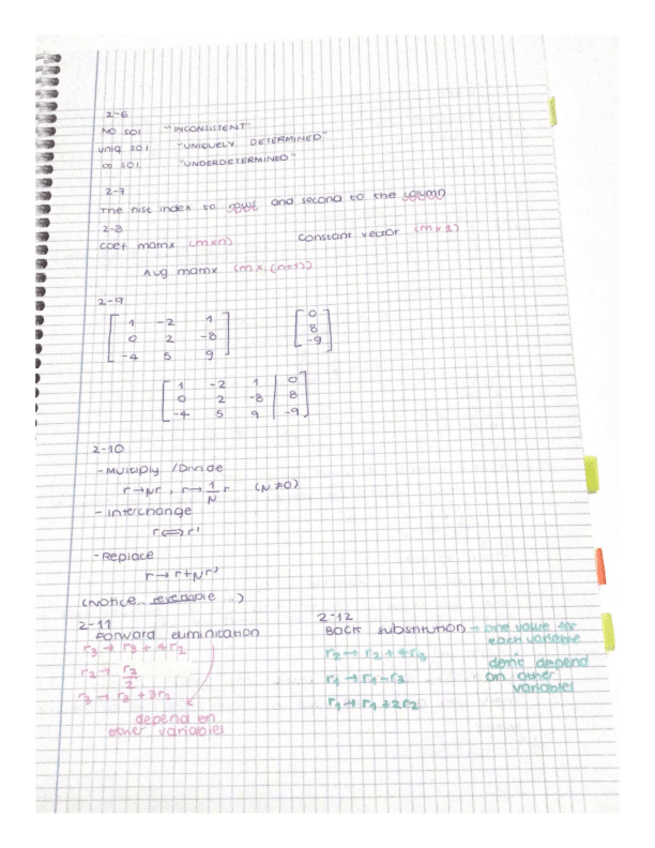 2-6
NO SOl "INCONSISTENT"
uniq sol "UNIQUELY DETERMINED"
∞ sol "UNDERDETERMINED"
2-7
The fist index to rows and second to the column
2-8
Coef matrix (m×n) Constant vector (m×1)
Aug matrix (m×(n+1))
2-9
1 -2 1 0
0 2 -8 8
-4 5 9 -9
1 -2 1 | 0
0 2 -8 | 8
-4 5 9 | -9
2-10
- Multiply /Divide
r→Nr, r→ 1/N r (N≠0)
- Interchange
r⟺r'
- Replace
r→r+Nr'
(Notice.. reversible ..)
2-11
Forward eliminication
r3 → r3 + 4r1
r2 → r2/2
r3 → r3 + 3r2
depend on
other variables
2-12
Back substitution - one value for
each variable
r2 → r2 + 4r3
r1 → r1 - r3
r1 → r1 + 2r2
dont depend
on other
variables